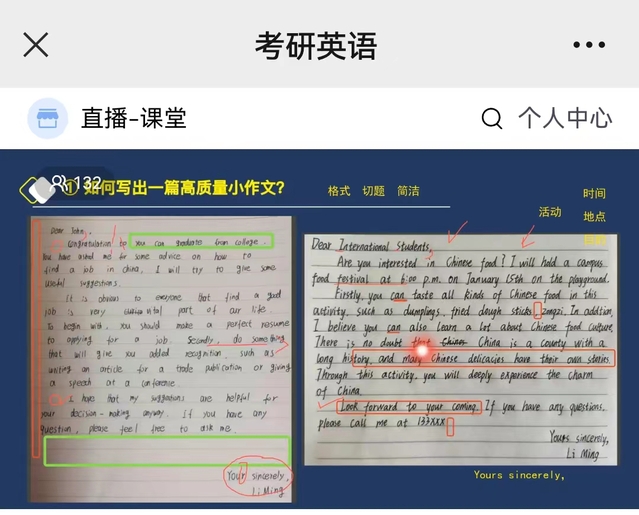 考研英语
直播-课堂
个人中心
132
① 如何写出一篇高质量小作文?
格式 切题 简洁
时间
活动
地点
Dear John,
Congratulation to you can graduate from college.
You have asked me for some advice on how to
find a job in china, I will try to give some
useful suggestions.
It is obvious to everyone that find a good
job is very vital part of our life.
To begin with, you should make a perfect resume
to applying for a job. Secondly, do something
that will give you added recognition, such as
writing an article for a trade publication or giving
a speech at a conference.
I hope that my suggestions are helpful for
your decision-making anyway. If you have any
question, please feel free to ask me.
Your sincerely,
Li Ming
Dear International Students,
Are you interested in Chinese food? I will hold a campus
food festival at 6:00 p.m. on January 15th on the playground.
Firstly, you can taste all kinds of Chinese food in this
activity, such as dumplings, fried dough sticks zongzi. In addition,
I believe you can also learn a lot about Chinese food culture.
There is no doubt that China is a county with a
long history, and many Chinese delicacies have their own stories.
Through this activity, you will deeply experience the charm
of China.
Look forward to your coming. If you have any questions,
please call me at 133XXX
Yours sincerely,
Li Ming
Yours sincerely,